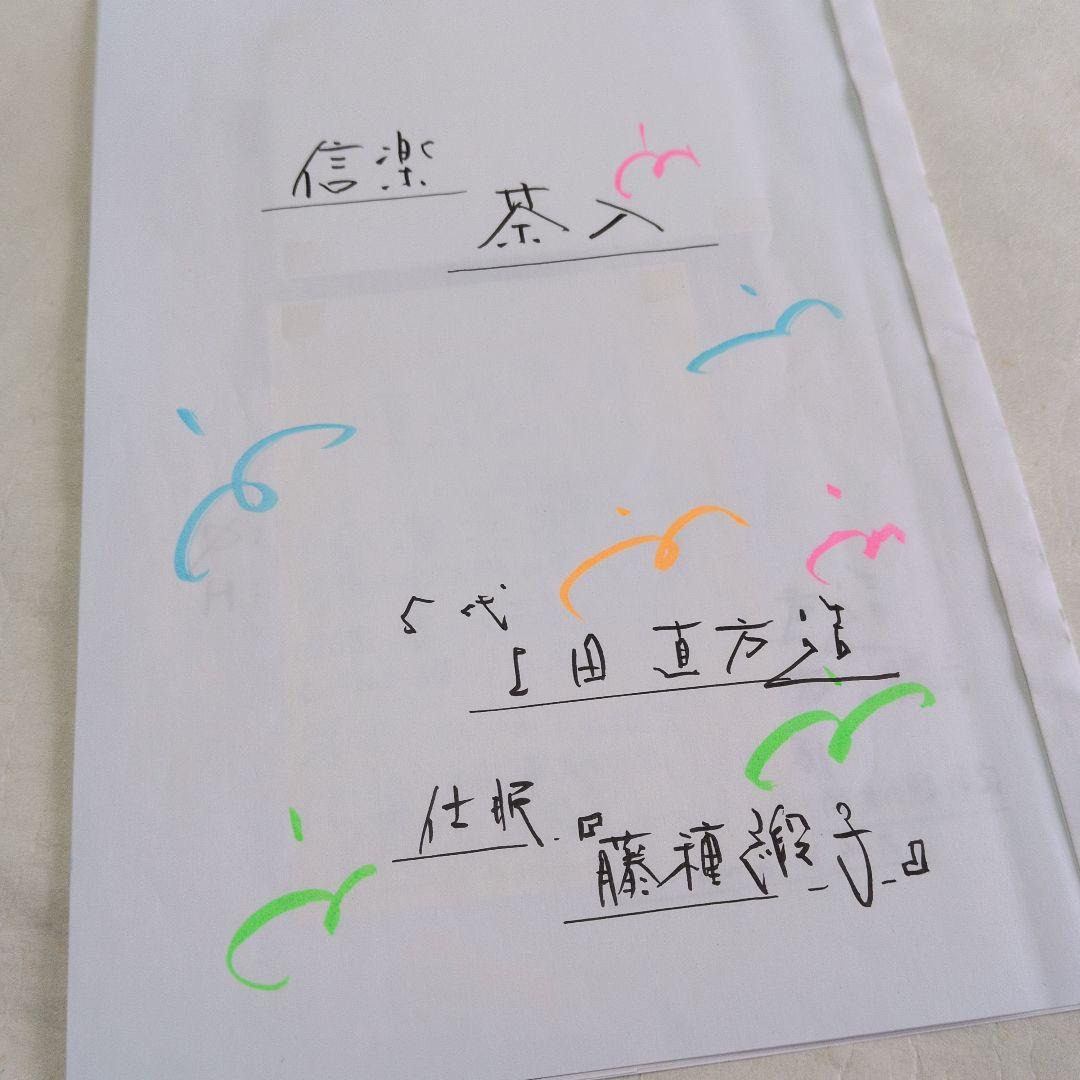 信楽
茶入
5代
上田直方造
仕服『藤種緞子』